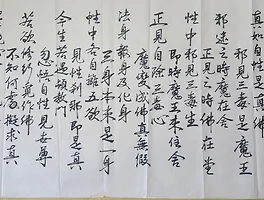 真如自性是真佛
邪見三毒是魔王
邪迷之時魔在舍
正見之時佛在堂
性中邪見三毒生
即時魔王來住舍
正見自除三毒心
魔變成佛真無假
法身報身及化身
三身本來是一身
性中各自離五欲
見性剎那即是真
今生若遇頓教門
忽悟自性見世尊
若欲修行覓作佛
不知何處擬求真